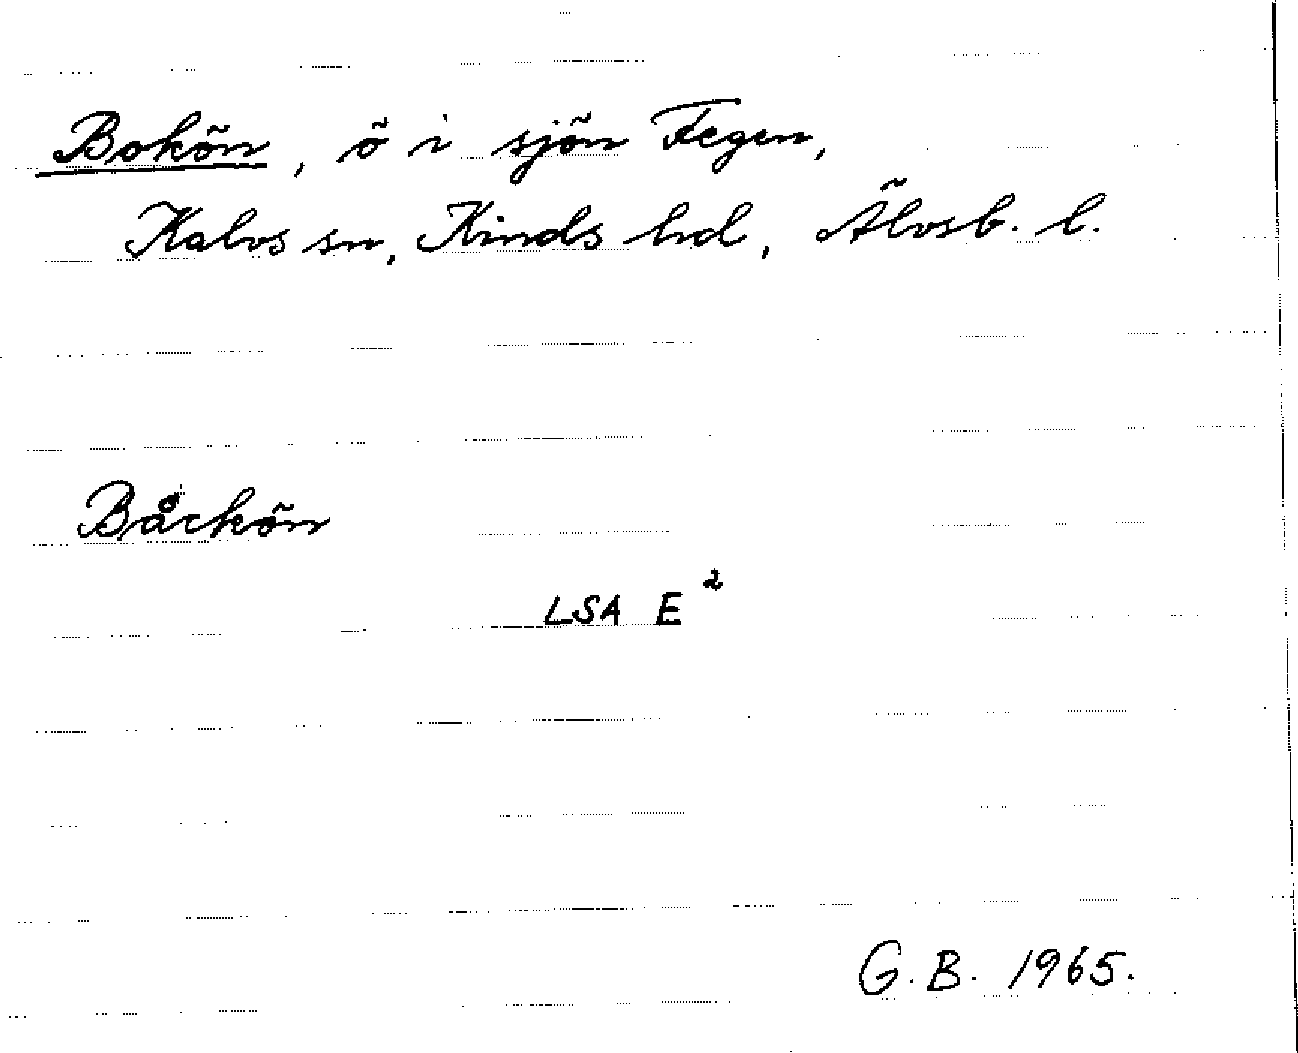 Bokön, ö i sjön Fegen,
Kalvs sn, Kinds hd, Älvsb. l.
Båckön
LSA E²
G.B. 1965.